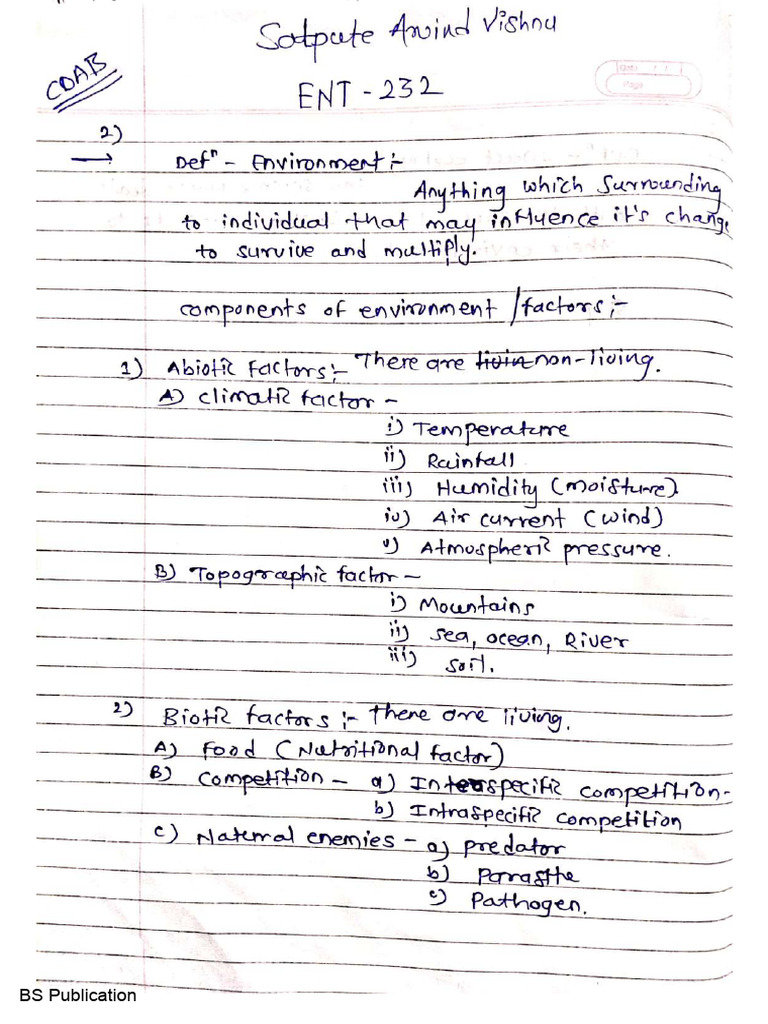 Satpute Arvind Vishnu
CDAB
ENT - 232
2)
→ Defⁿ - Environment :-
Anything which surrounding
to individual that may influence it's change
to survive and multiply.
components of environment / factors :-
1) Abiotic factors :- There are livin non-living.
A) climatic factor -
i) Temperature
ii) Rainfall
iii) Humidity (moisture).
iv) Air current (wind)
v) Atmospheric pressure.
B) Topographic factor -
i) Mountains
ii) sea, ocean, River
iii) soil.
2) Biotic factors :- There are living.
A) Food (Nutritional factor)
B) Competition - a) Interspecific competition-
b) Intraspecific competition
c) Natural enemies - a) predator
b) Parasite
c) Pathogen.
BS Publication